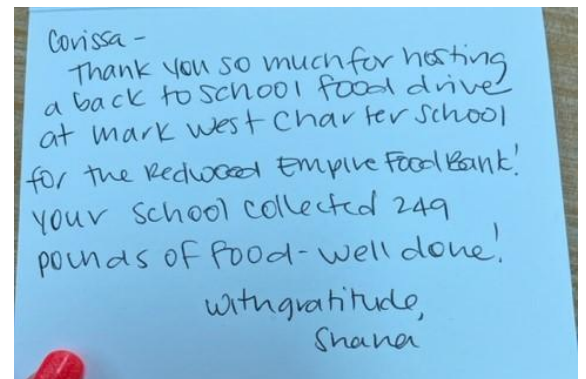 Corissa -
Thank you so much for hosting
a back to school food drive
at Mark West Charter School
for the Redwood Empire Food Bank!
Your school collected 249
pounds of food - well done!
With gratitude,
Shana